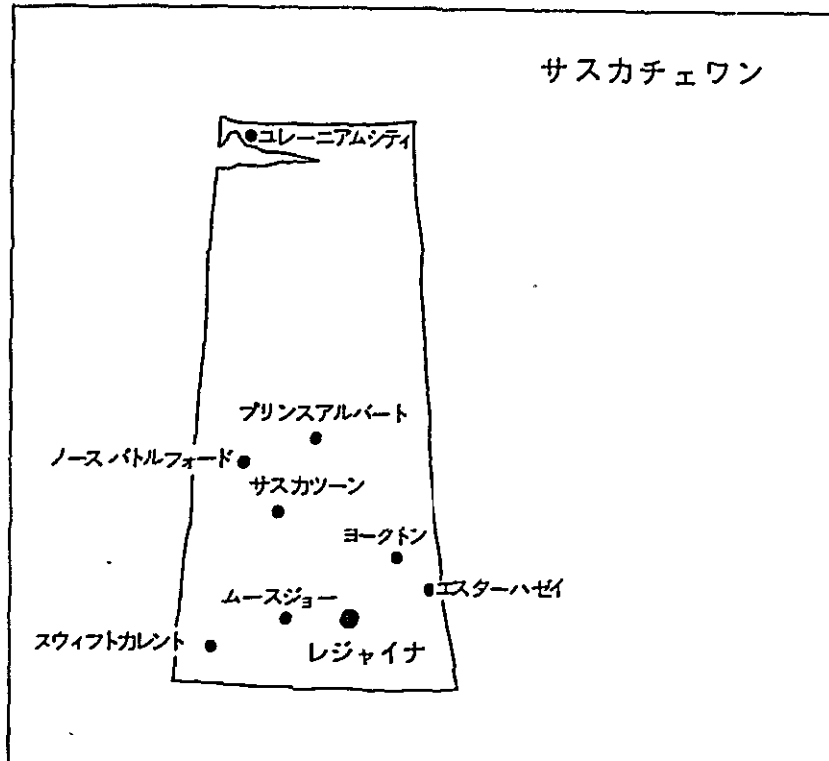 サスカチェワン
ユレーニアムシティ
プリンスアルバート
ノース バトルフォード
サスカツーン
ヨークトン
エスターハゼイ
ムースジョー
スウィフトカレント
レジャイナ